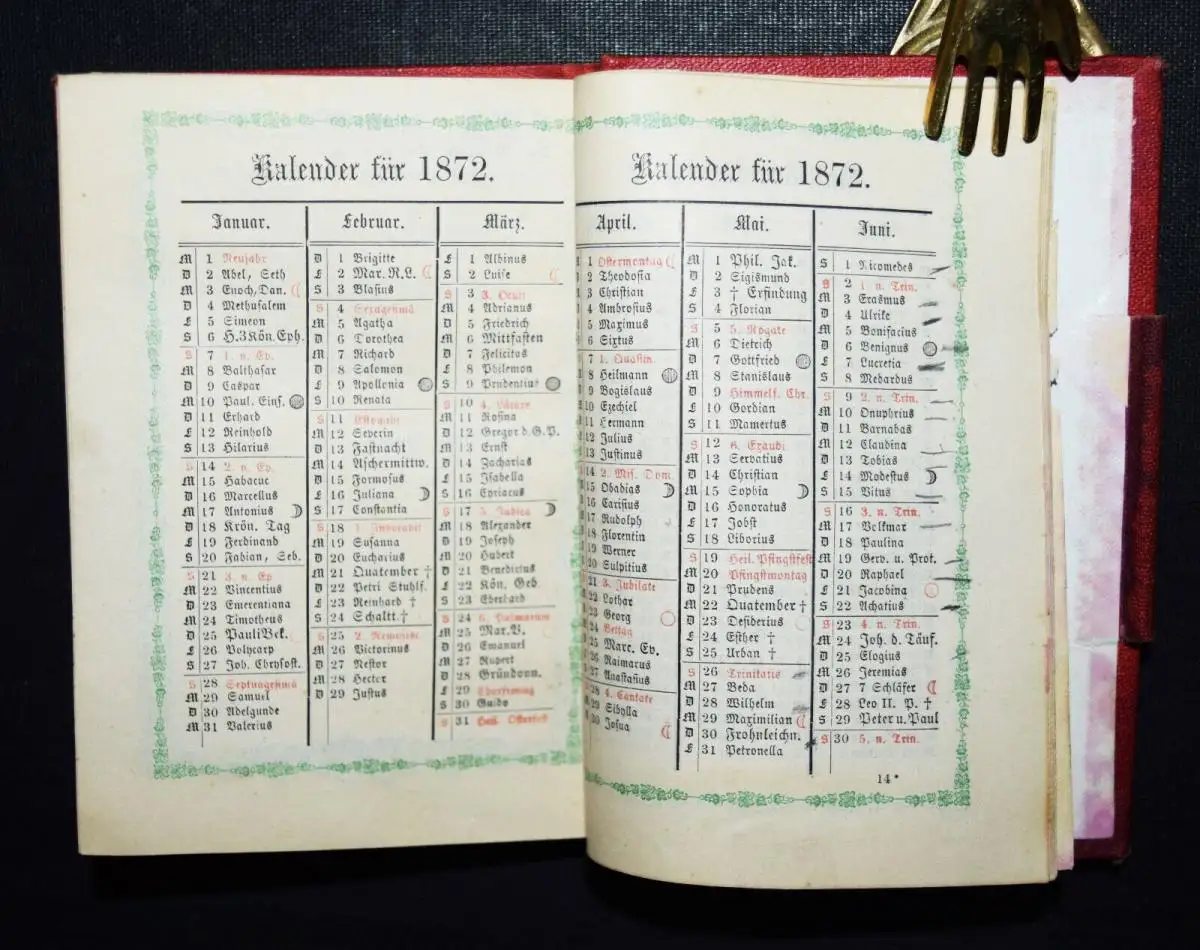 Kalender für 1872.
Januar.
M 1 Neujahr
D 2 Abel, Seth
M 3 Enoch, Dan.
D 4 Methusalem
F 5 Simeon
S 6 H.3Kön.Eph.
S 7 1. n. Ep.
M 8 Balthasar
D 9 Caspar
M 10 Paul. Eins.
D 11 Erhard
F 12 Reinhold
S 13 Hilarius
S 14 2. n. Ep.
M 15 Habacuc
D 16 Marcellus
M 17 Antonius
D 18 Krön. Tag
F 19 Ferdinand
S 20 Fabian, Seb.
S 21 3. n. Ep
M 22 Vincentius
D 23 Emerentiana
M 24 Timotheus
D 25 Pauli Bek.
F 26 Polycarp
S 27 Joh. Chrysost.
S 28 Septuagesimä
M 29 Samuel
D 30 Adelgunde
M 31 Valerius
Februar.
D 1 Brigitte
F 2 Mar. R.L.
S 3 Blasius
S 4 Sexagesimä
M 5 Agatha
D 6 Dorothea
M 7 Richard
D 8 Salomon
F 9 Apollonia
S 10 Renata
S 11 Estomihi
M 12 Severin
D 13 Fastnacht
M 14 Aschermittw.
D 15 Formosus
F 16 Juliana
S 17 Constantia
S 18 1. Invocavit
M 19 Susanna
D 20 Eucharius
M 21 Quatember †
D 22 Petri Stuhlf.
F 23 Reinhard †
S 24 Schaltt. †
S 25 2. Reminisc.
M 26 Victorinus
D 27 Nestor
M 28 Hector
D 29 Justus
März.
F 1 Albinus
S 2 Luise
S 3 3. Oculi
M 4 Adrianus
D 5 Friedrich
M 6 Mittfasten
D 7 Felicitas
F 8 Philemon
S 9 Prudentius
S 10 4. Lätare
M 11 Rosina
D 12 Gregor d.G.P.
M 13 Ernst
D 14 Zacharias
F 15 Isabella
S 16 Cyriacus
S 17 5. Judica
M 18 Alexander
D 19 Joseph
M 20 Hubert
D 21 Benedictus
F 22 Kön. Geb.
S 23 Eberhard
S 24 6. Palmarum
M 25 Mar. V.
D 26 Emanuel
M 27 Rupert
D 28 Gründonn.
F 29 Charfreitag
S 30 Guido
S 31 Heil. Osterfest
Kalender für 1872.
April.
1 Ostermontag
2 Theodosia
3 Christian
4 Ambrosius
5 Maximus
6 Sixtus
7 1. Quasim.
8 Heilmann
9 Bogislaus
10 Ezechiel
11 Hermann
12 Julius
13 Justinus
14 2. Mis. Dom.
15 Obadias
16 Carisius
17 Rudolph
18 Florentin
19 Werner
20 Sulpitius
21 3. Jubilate
22 Lothar
23 Georg
24 Bettag
25 Marc. Ev.
26 Raimarus
27 Anastasius
28 4. Cantate
29 Sibylla
30 Josua
Mai.
M 1 Phil. Jak.
D 2 Sigismund
F 3 † Erfindung
S 4 Florian
S 5 5. Rogate
M 6 Dietrich
D 7 Gottfried
M 8 Stanislaus
D 9 Himmelf. Chr.
F 10 Gordian
S 11 Mamertus
S 12 6. Exaudi
M 13 Servatius
D 14 Christian
M 15 Sophia
D 16 Honoratus
F 17 Jobst
S 18 Liborius
S 19 Heil. Pfingstfest
M 20 Pfingstmontag
D 21 Prudens
M 22 Quatember †
D 23 Desiderius
F 24 Esther †
S 25 Urban †
S 26 Trinitatis
M 27 Beda
D 28 Wilhelm
M 29 Maximilian
D 30 Frohnleichn.
F 31 Petronella
Juni.
S 1 Nicomedes
S 2 1. n. Trin.
M 3 Erasmus
D 4 Ulrike
M 5 Bonifacius
D 6 Benignus
F 7 Lucretia
S 8 Medardus
S 9 2. n. Trin.
M 10 Onuphrius
D 11 Barnabas
M 12 Claudina
D 13 Tobias
F 14 Modestus
S 15 Vitus
S 16 3. n. Trin.
M 17 Volkmar
D 18 Paulina
M 19 Gerv. u. Prot.
D 20 Raphael
F 21 Jacobina
S 22 Achatius
S 23 4. n. Trin.
M 24 Joh. d. Täuf.
D 25 Elogius
M 26 Jeremias
D 27 7 Schläfer
F 28 Leo II. P. †
S 29 Peter u. Paul
S 30 5. n. Trin.
14*